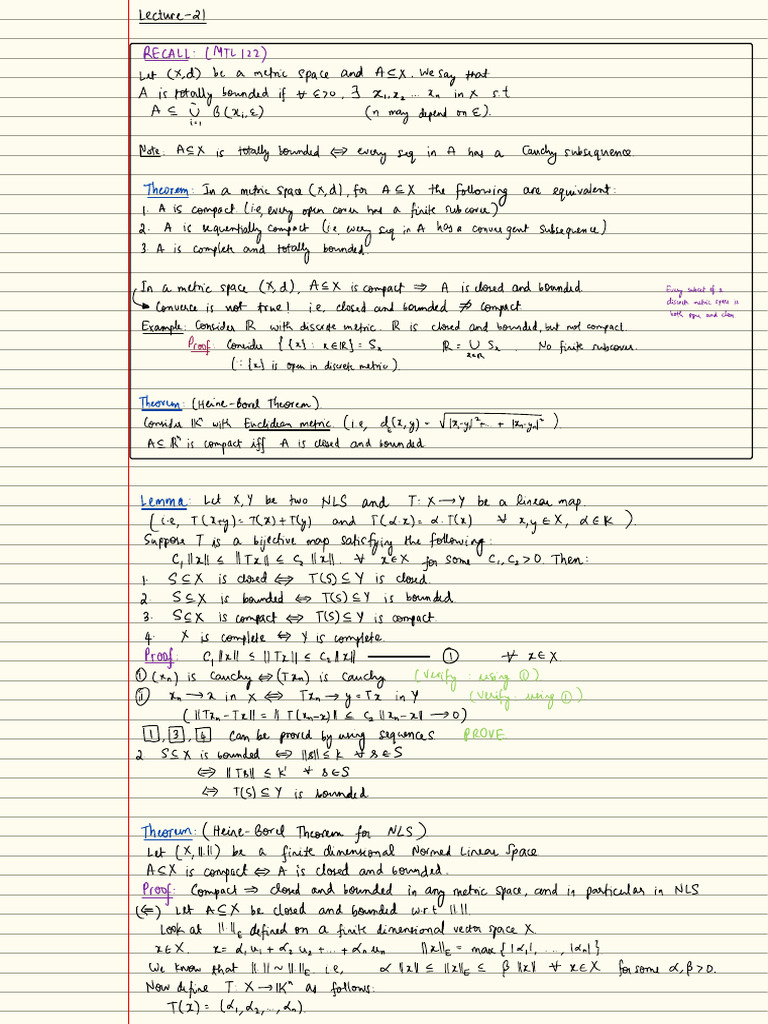 Lecture-21
RECALL: (MTL122)
Let (X,d) be a metric space and A⊆X. We say that
A is totally bounded if ∀ ε>0, ∃ x₁,x₂ ... xₙ in X s.t
A ⊆ ⋃ⁿᵢ₌₁ B(xᵢ,ε) (n may depend on ε).
Note: A⊆X is totally bounded ⇔ every seq in A has a Cauchy subsequence.
Theorem: In a metric space (X,d), for A⊆X the following are equivalent:
1. A is compact (i.e, every open cover has a finite subcover)
2. A is sequentially compact (i.e, every seq in A has a convergent subsequence)
3. A is complete and totally bounded.
In a metric space (X,d), A⊆X is compact ⇒ A is closed and bounded.
Converse is not true! i.e, closed and bounded ⇏ compact
Every subset of a
discrete metric space is
both open and clos
Example: Consider ℝ with discrete metric. ℝ is closed and bounded, but not compact.
Proof: Consider {{x} : x∈ℝ} = Sₓ ℝ = ⋃ₓ∈ℝ Sₓ . No finite subcover.
(∵ {x} is open in discrete metric).
Theorem: (Heine-Borel Theorem)
Consider 𝕂ⁿ with Euclidean metric. (i.e, d₂(x,y) = √|x₁-y₁|²+... + |xₙ-yₙ|² ).
A⊆ℝⁿ is compact iff A is closed and bounded
Lemma: Let X,Y be two NLS and T: X→Y be a linear map.
(i.e, T(x+y)=T(x)+T(y) and T(α.x)= α.T(x) ∀ x,y∈X, α∈𝕂 ).
Suppose T is a bijective map satisfying the following:
C₁||x|| ≤ ||Tx|| ≤ C₂||x||. ∀ x∈X for some C₁,C₂>0. Then:
1. S⊆X is closed ⇔ T(S)⊆Y is closed.
2. S⊆X is bounded ⇔ T(S)⊆Y is bounded
3. S⊆X is compact ⇔ T(S)⊆Y is compact
4. X is complete ⇔ Y is complete.
Proof: C₁||x|| ≤ ||Tx|| ≤ C₂||x|| ——— ① ∀ x∈X.
ⓘ (xₙ) is Cauchy ⇔ (Txₙ) is Cauchy (Verify: using ①)
ⓘⓘ xₙ→x in X ⇔ Txₙ→y=Tx in Y (Verify: using ①)
(||Txₙ-Tx|| = || T(xₙ-x)|| ≤ C₂||xₙ-x|| →0)
1, 3, 4 can be proved by using sequences PROVE.
2 S⊆X is bounded ⇔ ||s|| ≤ k ∀ s∈S
⇔ ||Ts|| ≤ k' ∀ s∈S
⇔ T(S)⊆Y is bounded
Theorem: (Heine-Borel Theorem for NLS)
Let (X,||.||) be a finite dimensional Normed Linear Space
A⊆X is compact ⇔ A is closed and bounded.
Proof: Compact ⇒ closed and bounded in any metric space, and in particular in NLS
(⇐) Let A⊆X be closed and bounded w.r.t ||.||.
Look at ||.||_E defined on a finite dimensional vector space X.
x∈X. x= α₁u₁+α₂u₂+...+αₙuₙ ||x||_E = max{|α₁|, ..., |αₙ|}
We know that ||.|| ~ ||.||_E. i.e, α||x|| ≤ ||x||_E ≤ β||x|| ∀ x∈X for some α,β>0.
Now define T: X→𝕂ⁿ as follows:
T(x) = (α₁,α₂,...,αₙ).